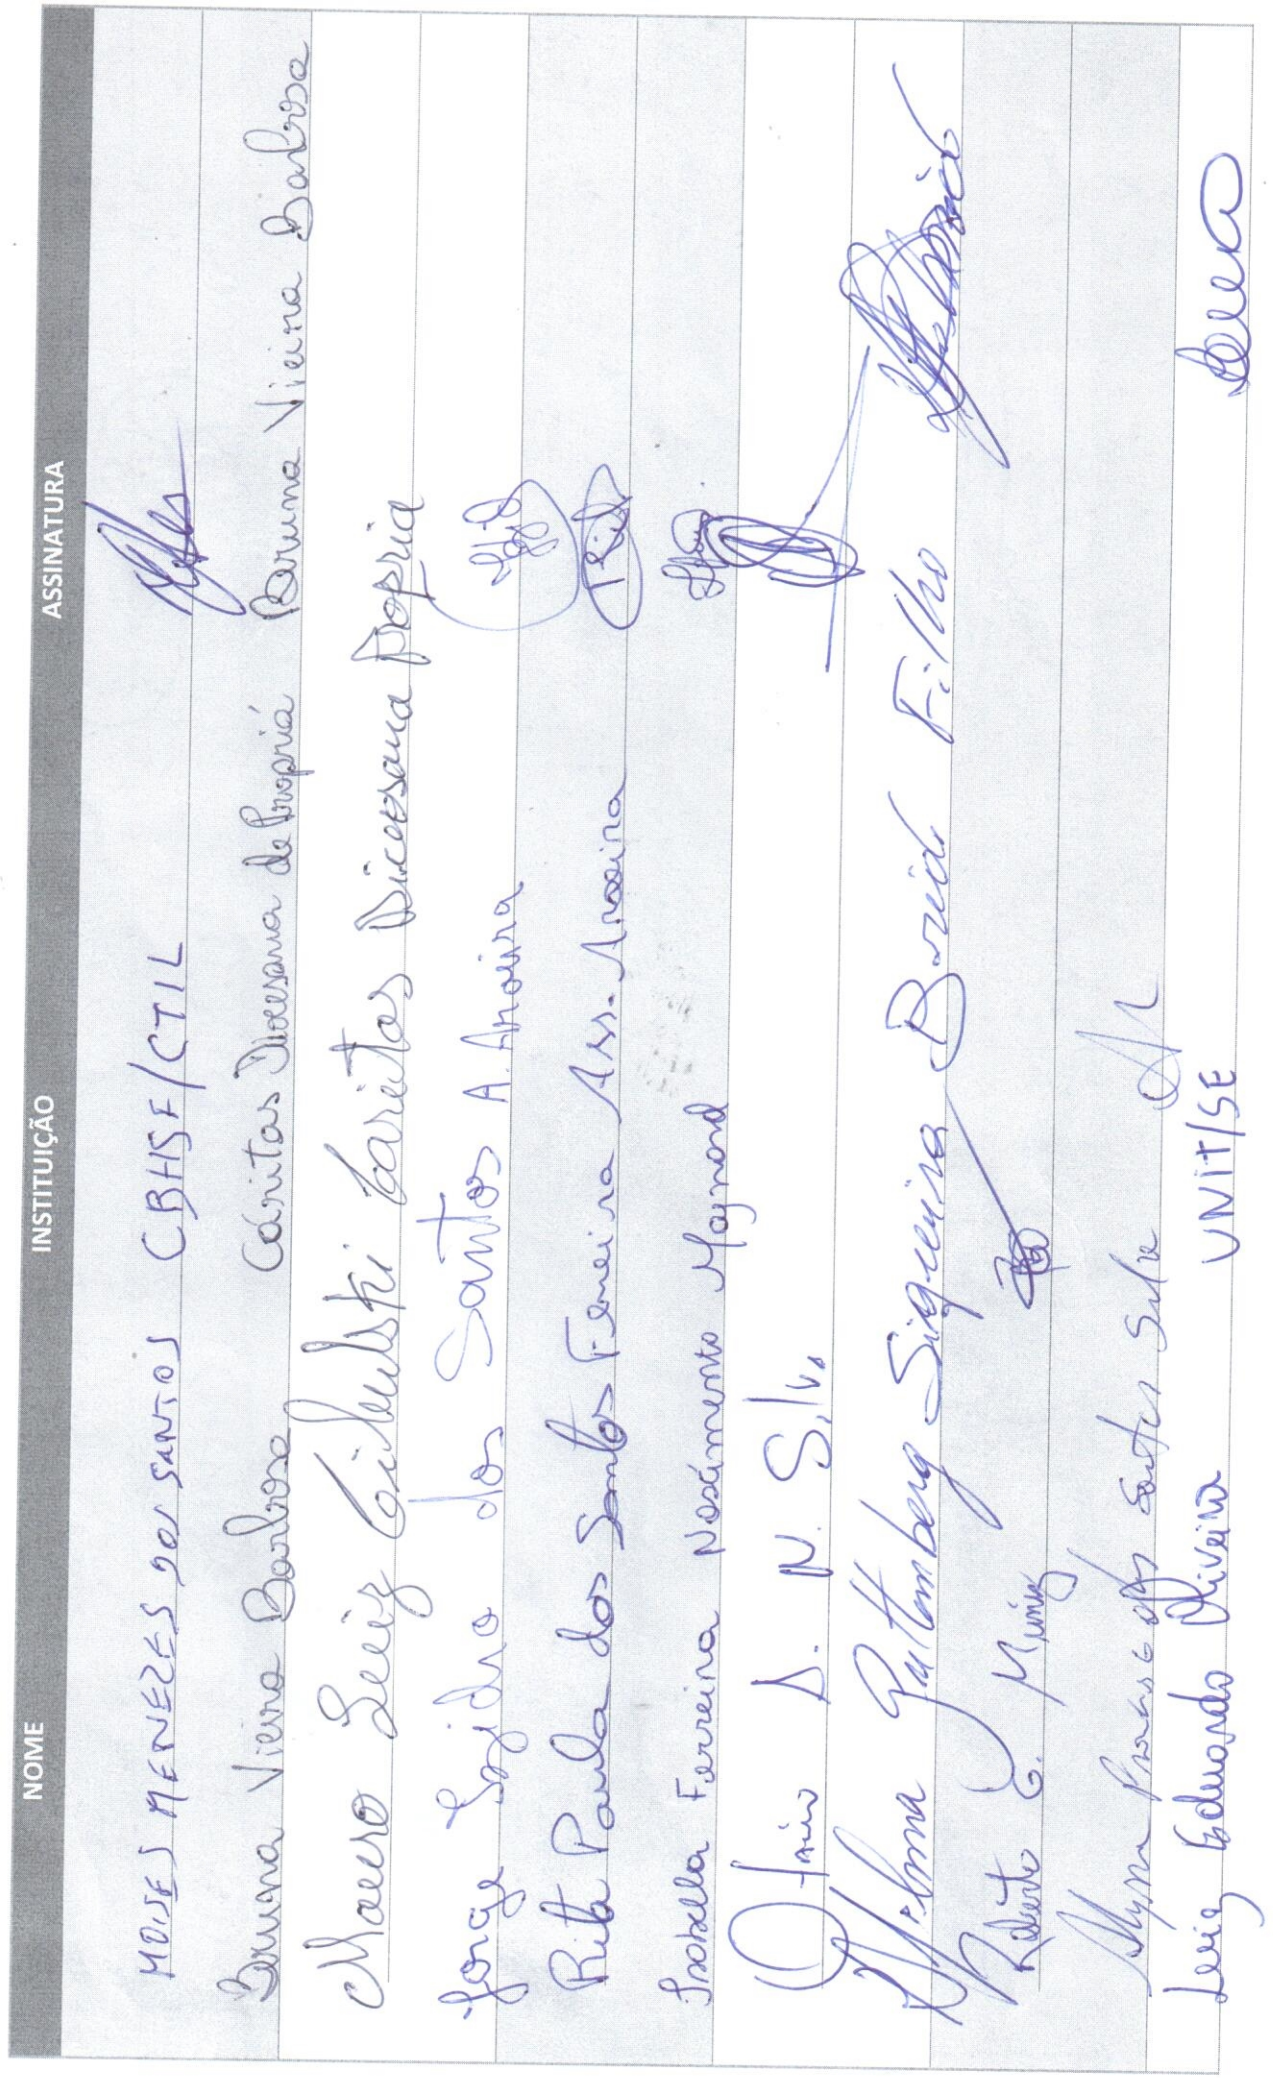 NOME INSTITUIÇÃO ASSINATURA
MOISES MENEZES DOS SANTOS CBHSF/CTIL
Bruna Vieira Barbosa Cáritas Diocesana de Propriá Bruna Vieira Barbosa
Mauro Luiz Cibulski Caritas Diocesana Propria
Jorge Izidro dos Santos A. Aroeira
Rita Paula dos Santos Ferreira Ass. Aroeira Rita
Isabella Ferreira Nascimento Maynard
Otávio D. N. Silva
Guttemberg Siqueira David Filho
Roberto C. Muniz
Santos Silva
Luiz Eduardo Oliveira UNIT/SE